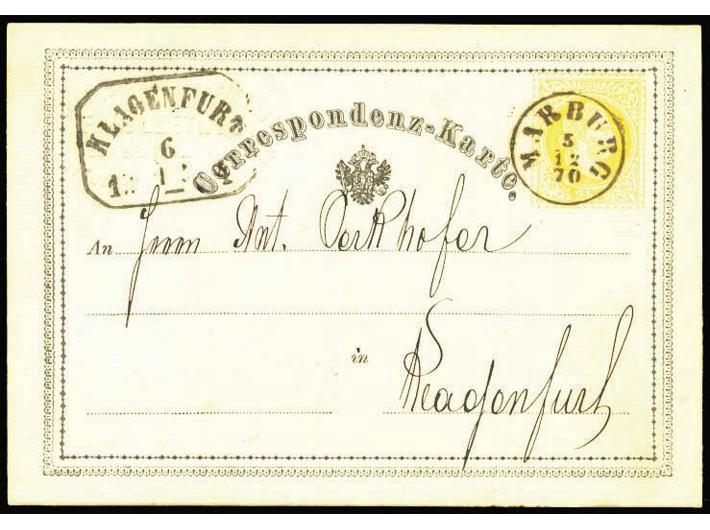 KLAGENFURT
6
12
Correspondenz-Karte.
MARBURG
5
12
70
An Herrn Ant.
in
Klagenfurt